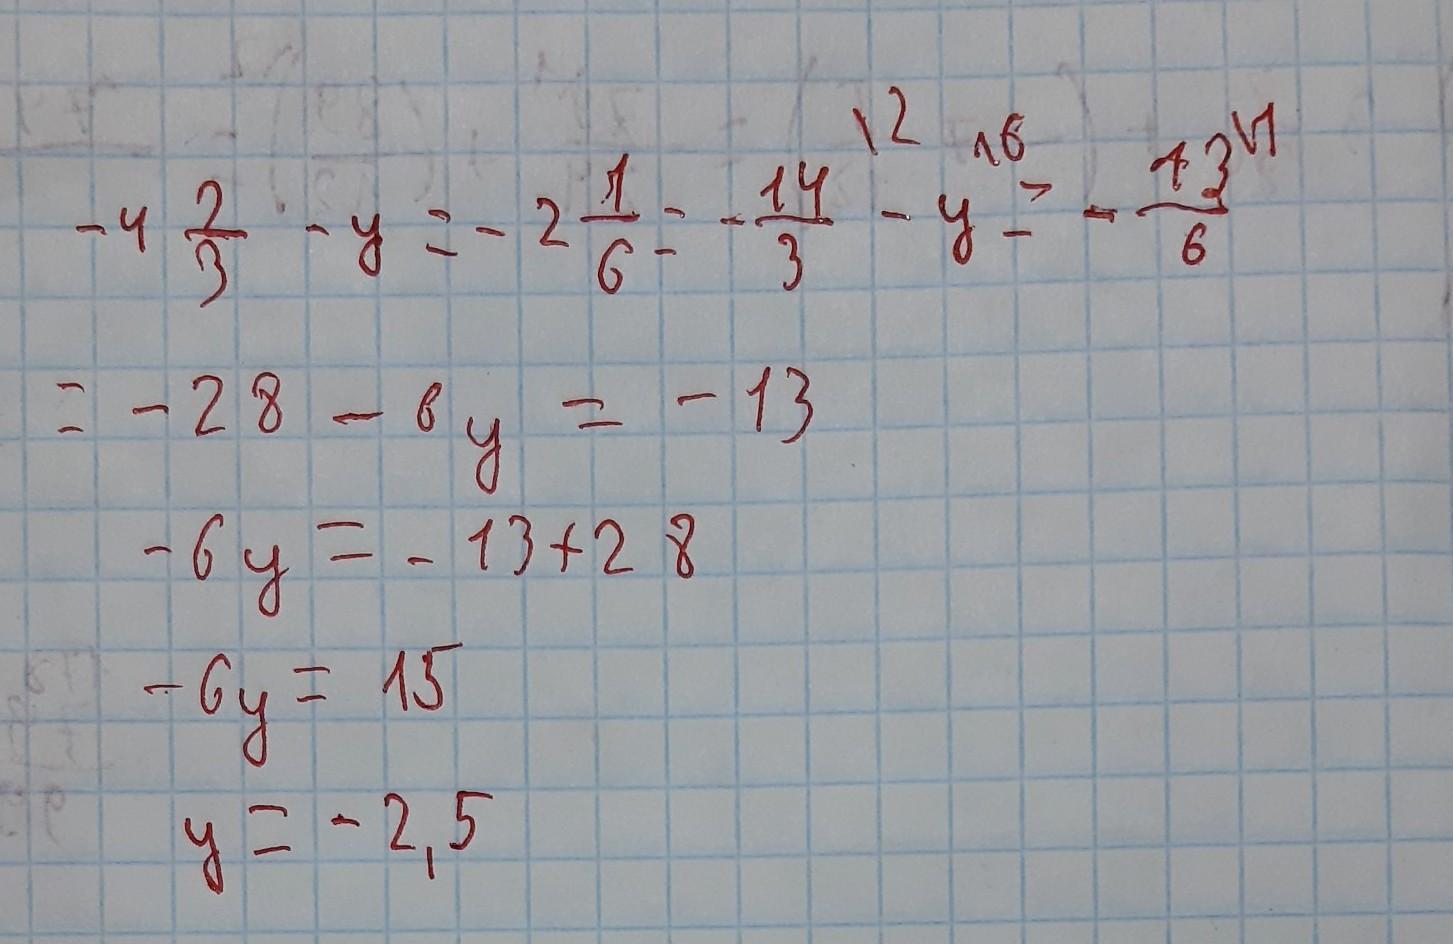 -4 2/3 - y = -2 1/6 = -14/3 \2 - y \6 = -13/6 \1
= -28 - 6y = -13
-6y = -13+28
-6y = 15
y = -2,5